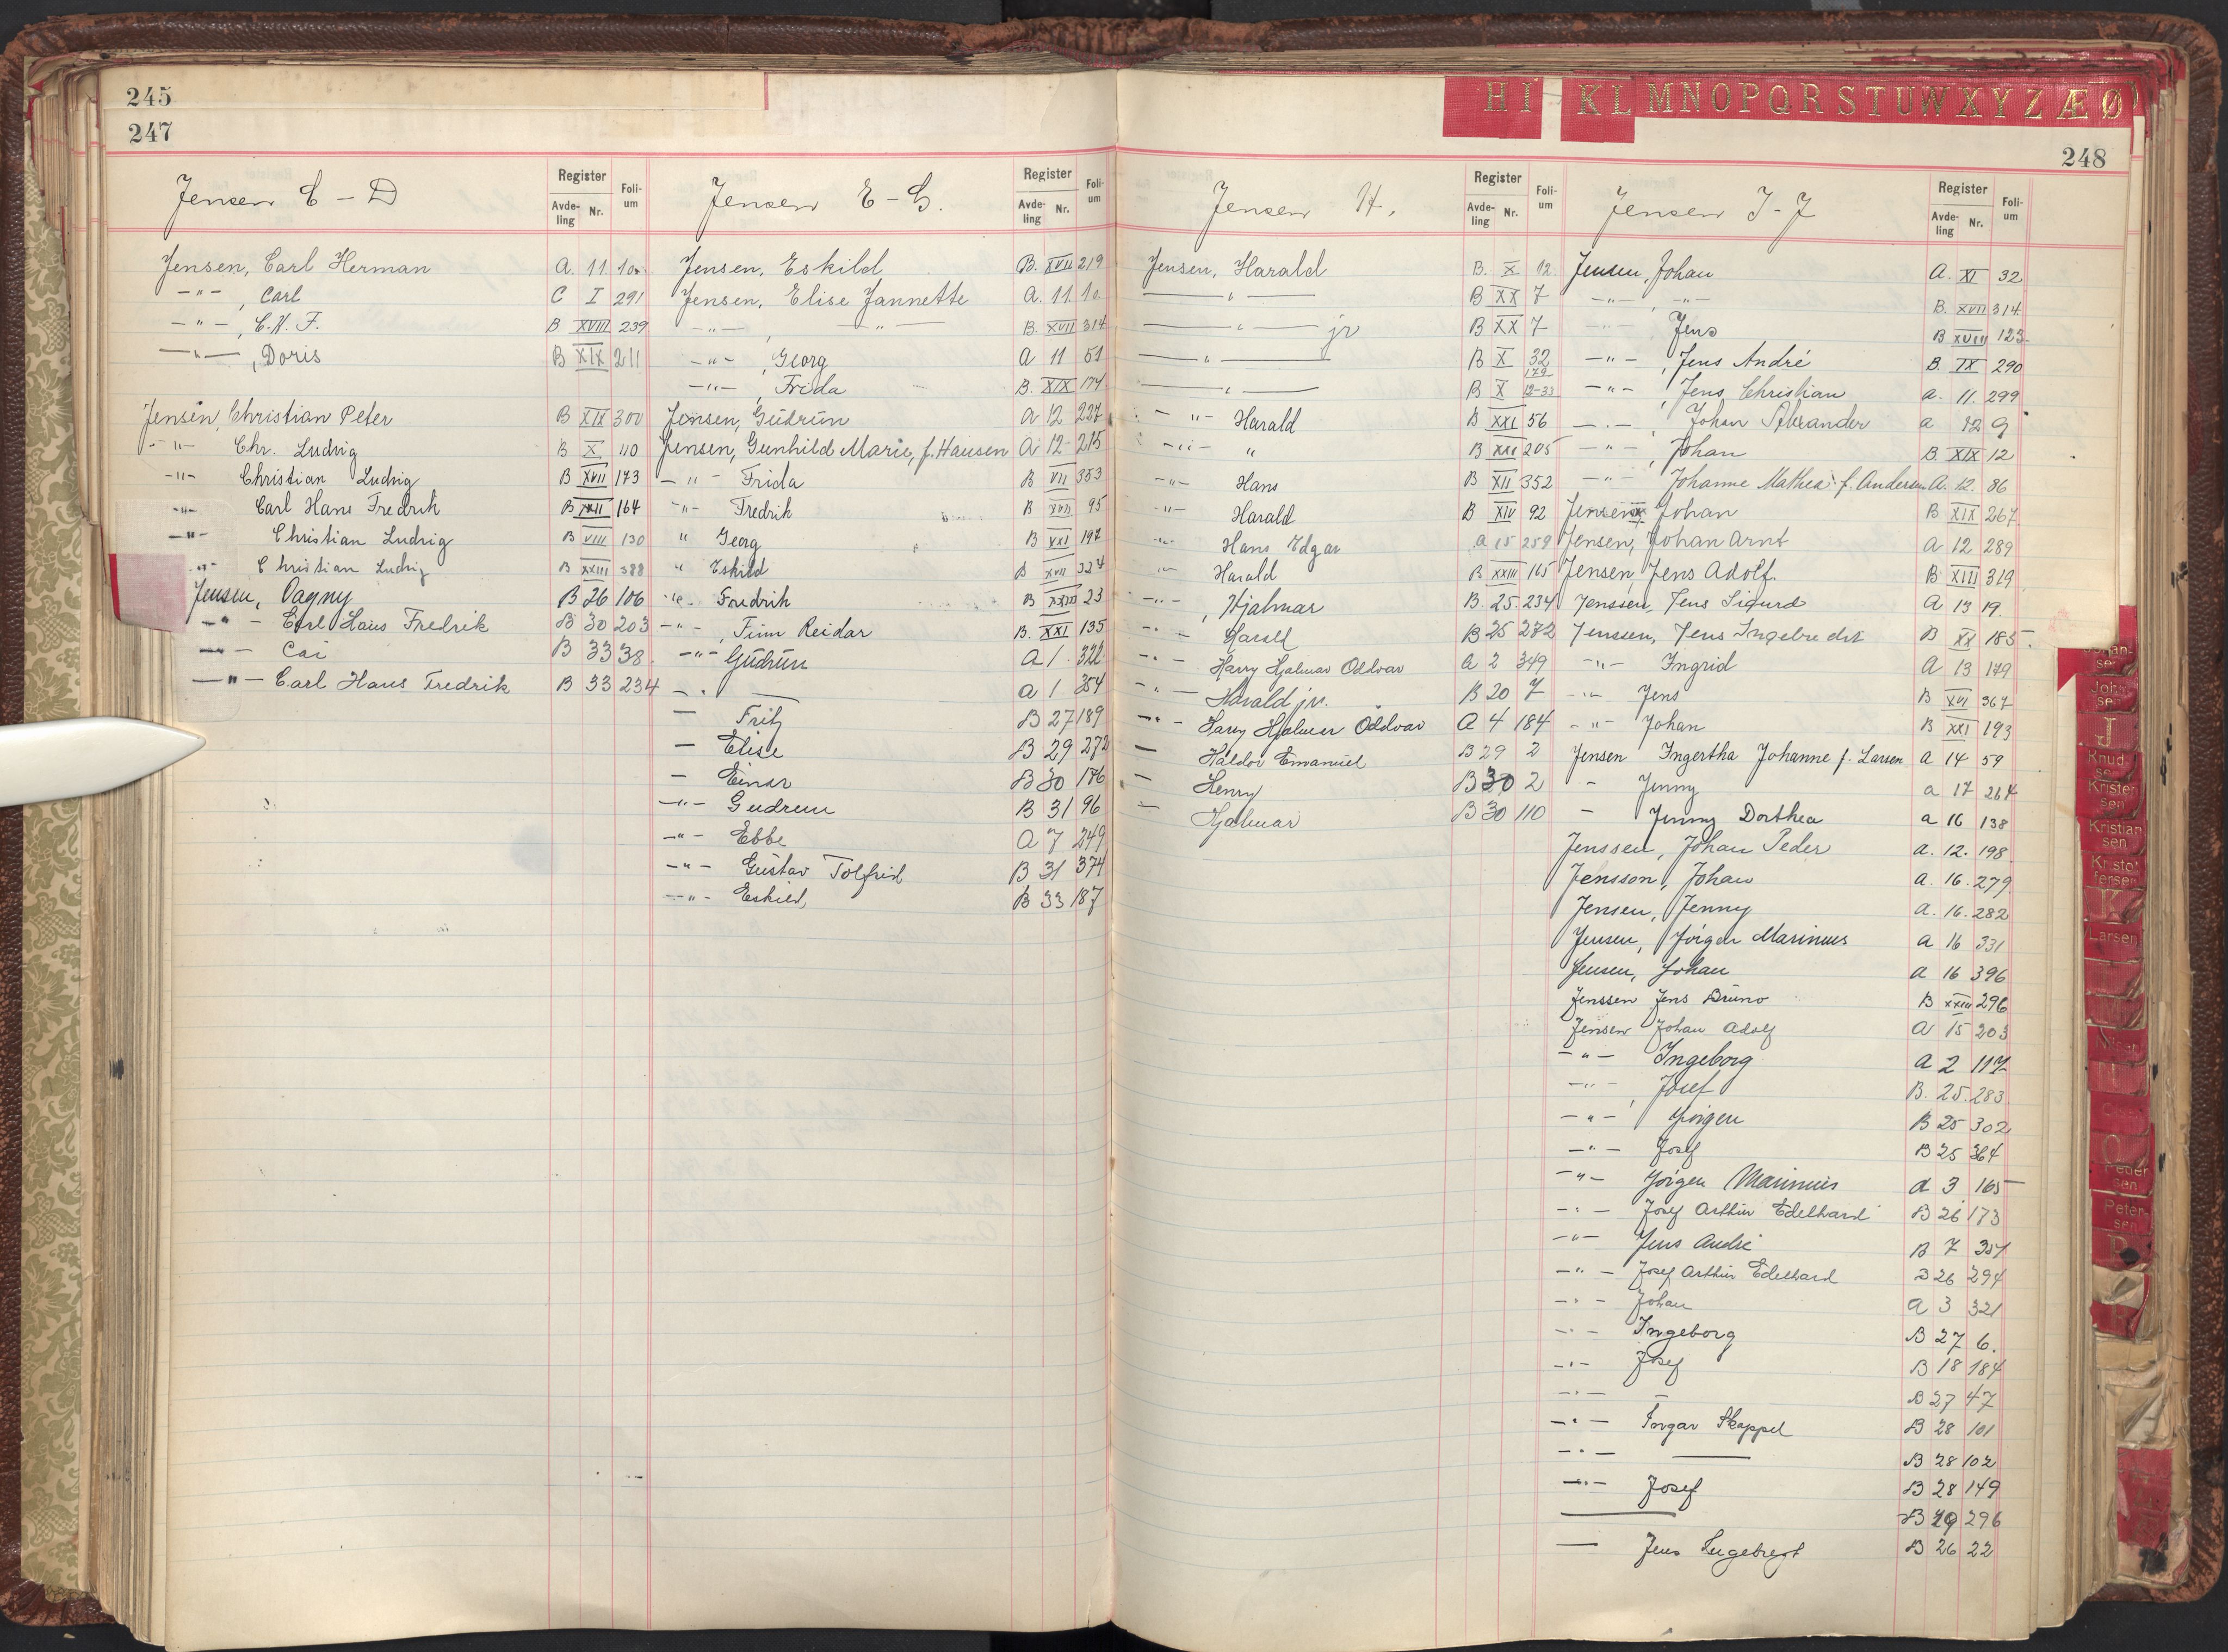 245
247
Jensen C - D
Register
Avde-ling Nr.
Foli-um
Jensen, Carl Herman A. 11. 10.
-"-, Carl C I 291
-"-, C.H.F. B XVIII 239
-"-, Doris B XIX 211
Jensen, Christian Peter B XIX 300
-"- Chr. Ludvig B X 110
-"- Christian Ludvig B XVII 173
-"- Carl Hans Fredrik B XXII 164
-"- Christian Ludvig B VIII 130
-"- Christian Ludvig B XXIII 388
Jensen, Dagny B 26 106
-"- Carl Hans Fredrik B 30 203
-"- Cai B 33 38
-"- Carl Hans Fredrik B 33 234
Jensen E - G.
Register
Avde-ling Nr.
Foli-um
Jensen, Eskild B. XVII 219
Jensen, Elise Jannette A. 11. 10.
-"-, -"- B. XVII 314
-"-, Georg A 11 51
-"-, Frida B. XIX 174
Jensen, Gudrun A 12 227
Jensen, Gunhild Marie, f. Hansen A 12 215
-"- Frida B VII 353
-"- Fredrik B XVII 95
" Georg B XXI 197
" Eskild B XVII 324
-"- Fredrik B XXIII 23
-"-, Finn Reidar B. XXI 135
-"- Gudrun A 1. 322
-"- — A 1 354
— Fritz B 27 189
— Elise B 29 272
— Einar B 30 176
-"- Gudrun B 31 96
-"- Ebbe A 7 249
-"- Gustav Tolfrid B 31 374
-"- Eskild, B 33 187
H I KL M N O P Q R S T U W X Y Z Æ Ø
248
Jensen H.
Register
Avde-ling Nr.
Foli-um
Jensen, Harald B. X 12
—"— B XX 7
—"— jr B XX 7
—"— B X 32
179
—"— B X 12-33
-"- Harald B XXI 56
-"- " B XXI 205
-"- Hans B XII 352
-"- Harald B XIV 92
-"- Hans Edgar A 15 259
-"- Harald B XXIII 165
-"-, Hjalmar B. 25. 234
-"- Harald B 25 272
-"- Harry Hjalmar Oddvar A 2 349
-"- Harald jr. B 20 7
-"- Harry Hjalmar Oddvar A 4 184
— Haldor Emanuel B 29 2
— Henry B 30 2
— Hjalmar B 30 110
Jensen I-J
Register
Avde-ling Nr.
Foli-um
Jensen, Johan A. XI 32
-"-, -"- B. XVII 314
-"- Jens B XVIII 123
-"-, Jens André B. IX 290
-"-, Jens Christian A. 11. 299
-"-, Johan Alexander A 12 9
-"-, Johan B. XIX 12
-"- Johanne Mathea f. Andersen A. 12. 86
Jensen, Johan B XIX 267
Jensen, Johan Arnt A 12 289
Jensen, Jens Adolf. B XIII 319
Jenssen, Jens Sigurd A 13 19.
Jenssen, Jens Ingebredt B XX 185
-"- Ingrid A 13 179
-"- Jens B XVI 367
-"- Johan B XXI 193
Jensen Ingertha Johanne f. Larsen A 14 59
- Jenny A 17 264
- Jenny Dorthea A 16 138
Jenssen, Johan Peder A. 12. 198
Jensson, Johan A. 16. 279
Jensen, Jenny A. 16. 282
Jensen, Jörgen Marinius A 16 331
Jensen, Johan A 16 396
Jenssen Jens Bruno B XXIII 296
Jensen Johan Adolf A 15 203
-"- Ingeborg A 2 117
-"-, Josef B. 25. 283
-"- Jörgen B 25 302
-"- Josef B 25 364
-"- Jörgen Marinius A 3 165
-"- Josef Arthur Edelhard B 26 173
-"- Jens André B 7 351
-"- Josef Arthur Edelhard B 26 294
-"- Johan A 3 321
-"- Ingeborg B 27 6.
-"- Josef B 18 184
-"- — B 27 47
-"- Skappel B 28 101
-"- — B 28 102
-"- Josef B 28 149
— B 29 296
— Jens Ingebregt B 26 22
Johan-sen
J
Knud-sen
Krister-sen
Kristian-sen
Kristof-fersen
K
Larsen
Peder-sen
Peter-sen